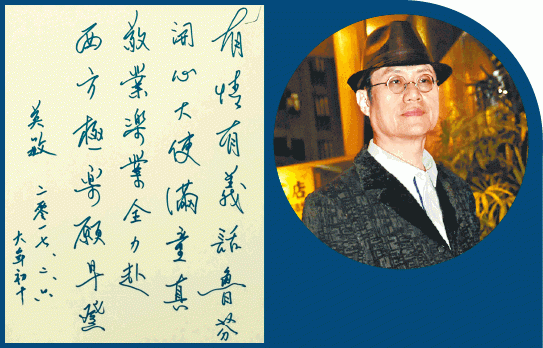 有情有義話魯芬
開心大使滿童真
敬業樂業全力赴
西方極樂願早登
二零一七、二、六
大年初十
店